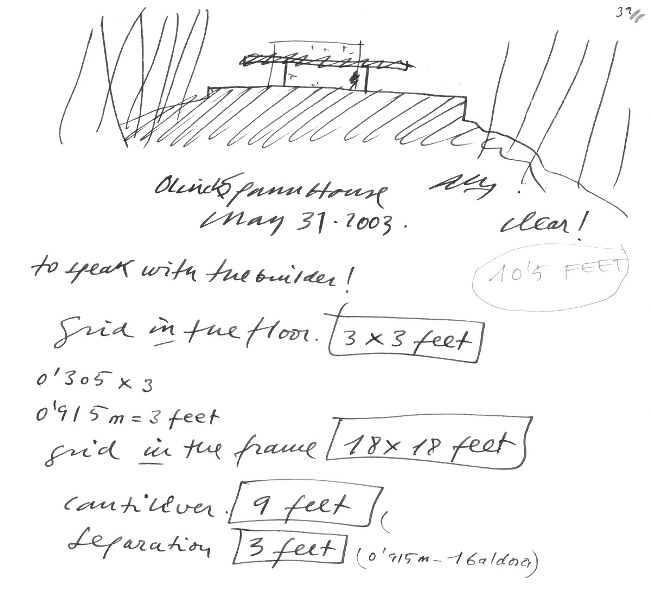 39
Olnick Spanu House
May 31-2003.
sky!
clear!
to speak with the builder!
10'5 FEET
grid in the floor. 3 x 3 feet
0'305 x 3
0'915 m = 3 feet
grid in the frame 18 x 18 feet
cantilever. 9 feet
separation 3 feet (0'915m -